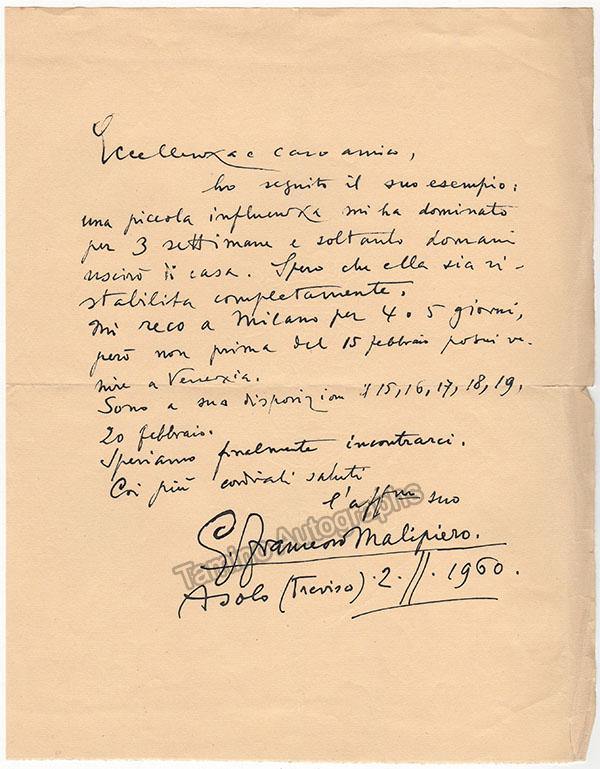 Eccellenza e caro amico,
ho seguito il suo esempio:
una piccola influenza mi ha dominato
per 3 settimane e soltanto domani
uscirò di casa. Spero che ella sia ri-
stabilita completamente.
Mi reco a Milano per 4 o 5 giorni,
però non prima del 15 febbraio potrei ve-
nire a Venezia.
Sono a sua disposizione il 15, 16, 17, 18, 19,
20 febbraio.
Speriamo finalmente incontrarci.
Coi più cordiali saluti
l'affmo suo
G. Francesco Malipiero.
Tamino Autographs
Asolo (Treviso) . 2 . II . 1960 .